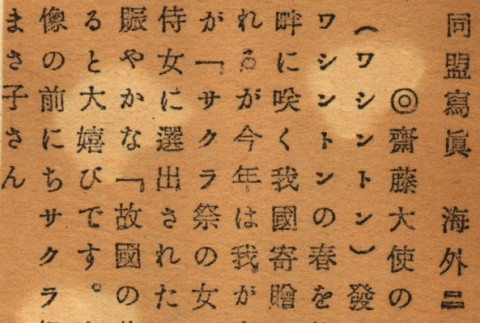 同盟寫眞 海外ニュ
◎齋藤大使の
(ワシントン)發
ワシントンの春を
畔に咲く我國寄贈
れるが今年は我が
が「サクラ祭の女
侍女に選出された
賑やかな「故國の
ると大嬉びです。
像の前にちサクラ
まさ子さん